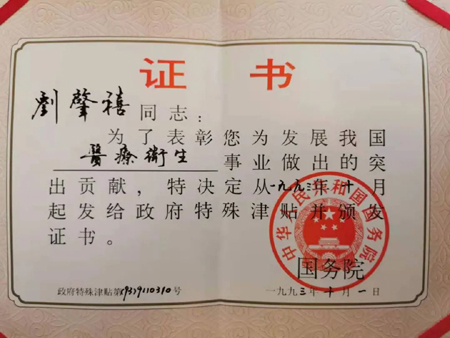 证书
劉聲禧同志：
为了表彰您为发展我国
醫療衛生事业做出的突
出贡献，特决定从一九九三年十月
起发给政府特殊津贴并颁发
证书。
中华人民共和国国务院
国务院
政府特殊津贴第(93)9110310号
一九九三年十月一日